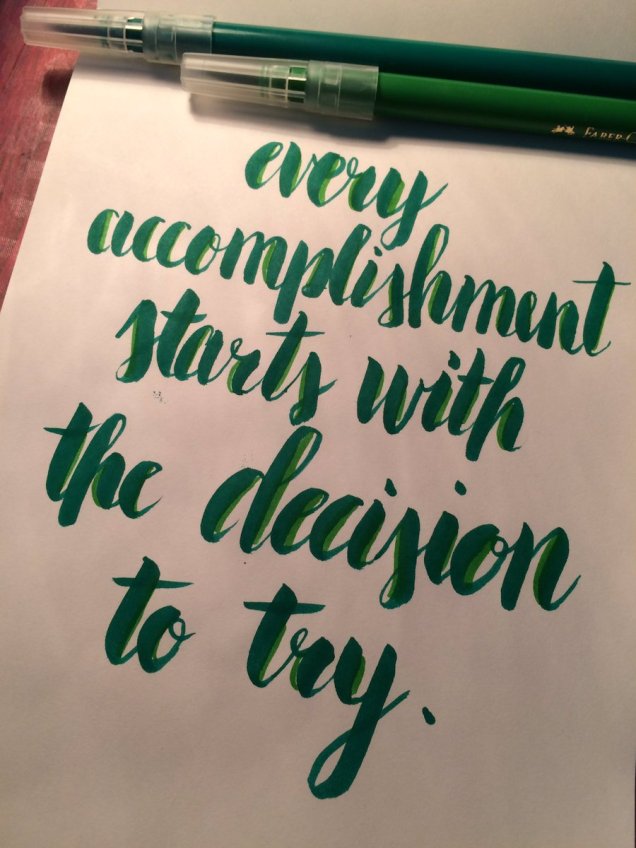 every
accomplishment
starts with
the decision
to try.